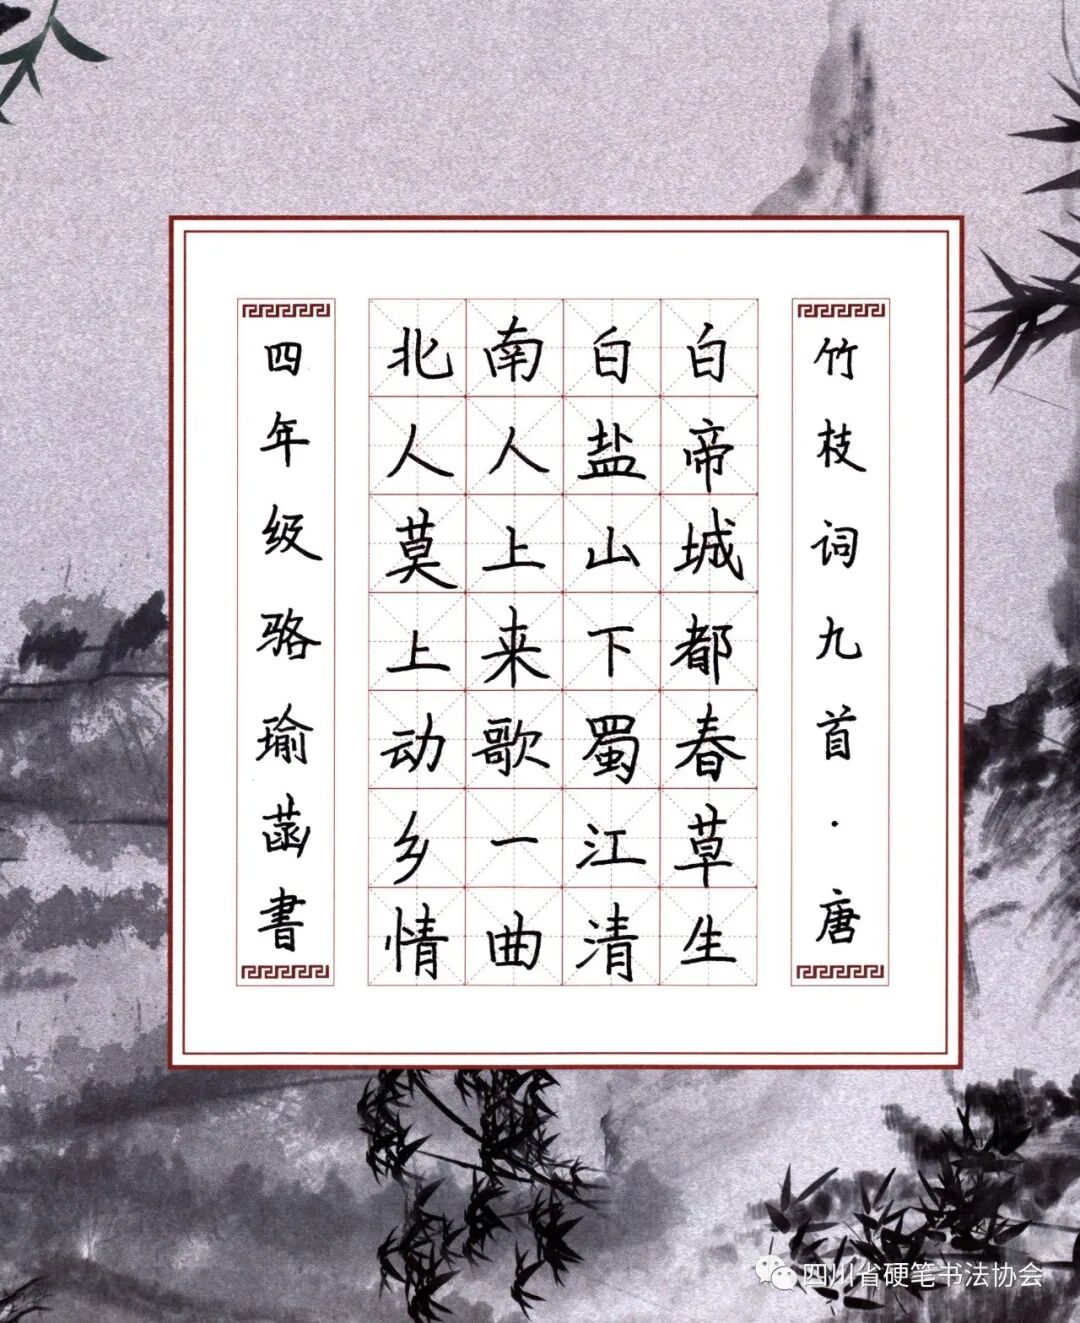 竹枝词九首·唐
白帝城都春草生
白盐山下蜀江清
南人上来歌一曲
北人莫上动乡情
四年级骆瑜菡書
四川省硬笔书法协会